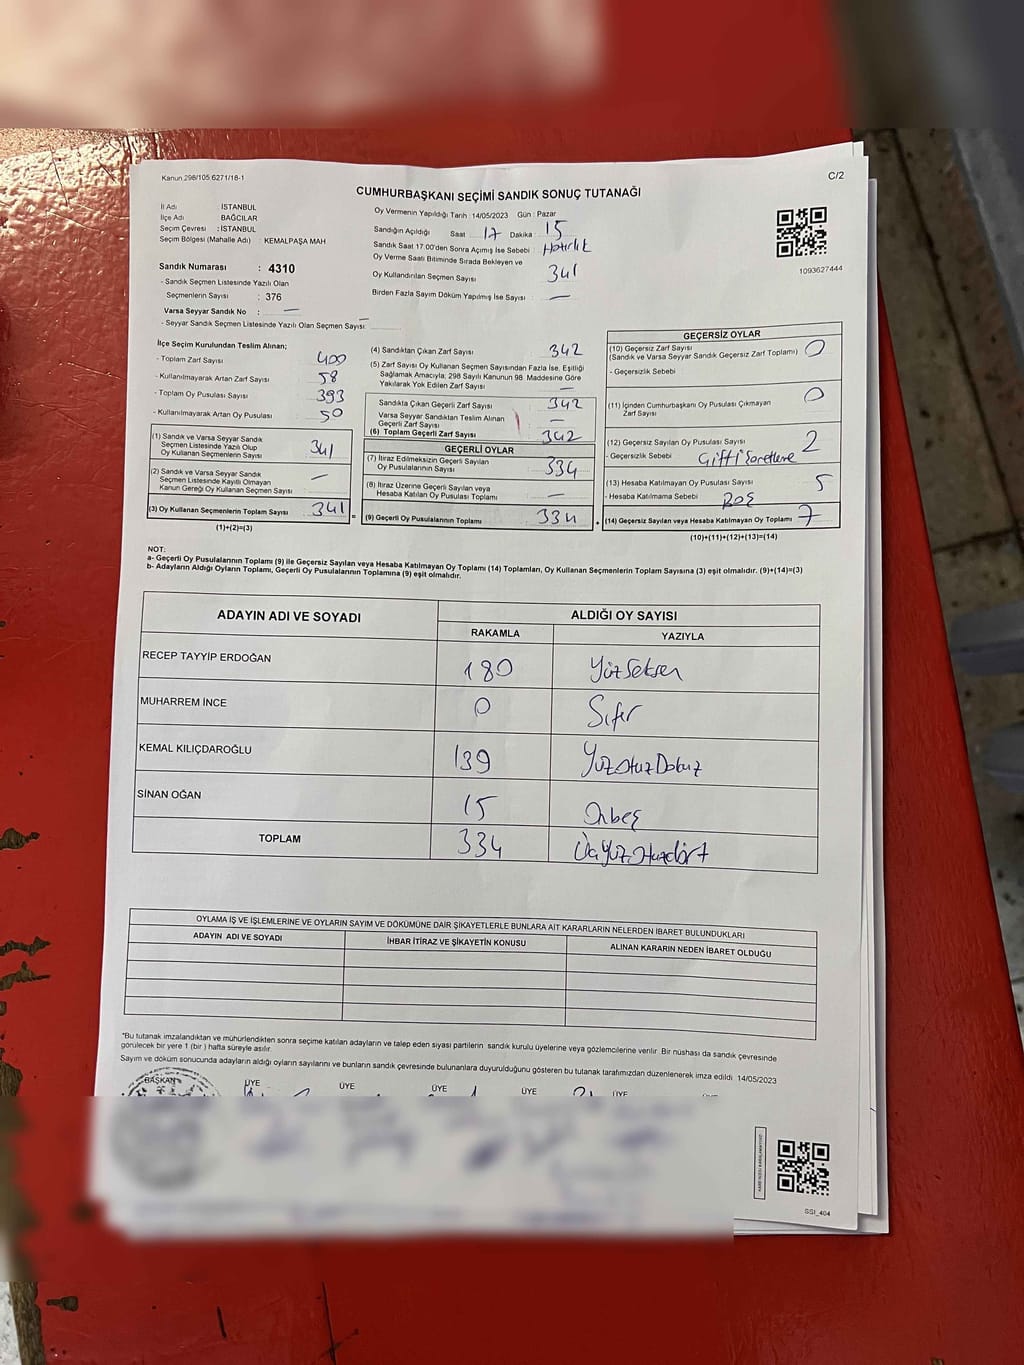 Kanun 298/105 6271/18-1
C/2
CUMHURBAŞKANI SEÇİMİ SANDIK SONUÇ TUTANAĞI
İl Adı : İSTANBUL
İlçe Adı : BAĞCILAR
Seçim Çevresi : İSTANBUL
Seçim Bölgesi (Mahalle Adı) : KEMALPAŞA MAH
Sandık Numarası : 4310
- Sandık Seçmen Listesinde Yazılı Olan
Seçmenlerin Sayısı : 376
Varsa Seyyar Sandık No : —
- Seyyar Sandık Seçmen Listesinde Yazılı Olan Seçmen Sayısı: —
Oy Vermenin Yapıldığı Tarih : 14/05/2023 Gün : Pazar
Sandığın Açıldığı Saat : 17 Dakika : 15
Sandık Saat 17:00'den Sonra Açımış İse Sebebi : Hazırlık
Oy Verme Saati Bitiminde Sırada Bekleyen ve
Oy Kullandırılan Seçmen Sayısı 341
Birden Fazla Sayım Döküm Yapılmış İse Sayısı : —
1093627444
İlçe Seçim Kurulundan Teslim Alınan;
- Toplam Zarf Sayısı 400
- Kullanılmayarak Artan Zarf Sayısı 58
- Toplam Oy Pusulası Sayısı 393
- Kullanılmayarak Artan Oy Pusulası 50
(1) Sandık ve Varsa Seyyar Sandık
Seçmen Listesinde Yazılı Olup
Oy Kullanan Seçmenlerin Sayısı 341
(2) Sandık ve Varsa Seyyar Sandık
Seçmen Listesinde Kayıtlı Olmayan
Kanun Gereği Oy Kullanan Seçmen Sayısı —
(3) Oy Kullanan Seçmenlerin Toplam Sayısı 341 =
(1)+(2)=(3)
(4) Sandıktan Çıkan Zarf Sayısı 342
(5) Zarf Sayısı Oy Kullanan Seçmen Sayısından Fazla İse, Eşitliği
Sağlamak Amacıyla; 298 Sayılı Kanunun 98. Maddesine Göre
Yakılarak Yok Edilen Zarf Sayısı —
Sandıkta Çıkan Geçerli Zarf Sayısı 342
Varsa Seyyar Sandıktan Teslim Alınan
Geçerli Zarf Sayısı —
(6) Toplam Geçerli Zarf Sayısı 342
GEÇERLİ OYLAR
(7) İtiraz Edilmeksizin Geçerli Sayılan
Oy Pusulalarının Sayısı 334
(8) İtiraz Üzerine Geçerli Sayılan veya
Hesaba Katılan Oy Pusulası Toplamı —
(9) Geçerli Oy Pusulalarının Toplamı 334 +
GEÇERSİZ OYLAR
(10) Geçersiz Zarf Sayısı 0
(Sandık ve Varsa Seyyar Sandık Geçersiz Zarf Toplamı)
- Geçersizlik Sebebi
(11) İçinden Cumhurbaşkanı Oy Pusulası Çıkmayan 0
Zarf Sayısı
(12) Geçersiz Sayılan Oy Pusulası Sayısı 2
- Geçersizlik Sebebi Çift İşaretleme
(13) Hesaba Katılmayan Oy Pusulası Sayısı 5
- Hesaba Katılmama Sebebi Boş
(14) Geçersiz Sayılan veya Hesaba Katılmayan Oy Toplamı 7
(10)+(11)+(12)+(13)=(14)
NOT:
a- Geçerli Oy Pusulalarının Toplamı (9) ile Geçersiz Sayılan veya Hesaba Katılmayan Oy Toplamı (14) Toplamları, Oy Kullanan Seçmenlerin Toplam Sayısına (3) eşit olmalıdır. (9)+(14)=(3)
b- Adayların Aldığı Oyların Toplamı, Geçerli Oy Pusulalarının Toplamına (9) eşit olmalıdır.
ADAYIN ADI VE SOYADI ALDIĞI OY SAYISI
RAKAMLA YAZIYLA
RECEP TAYYİP ERDOĞAN 180 YüzSeksen
MUHARREM İNCE 0 Sıfır
KEMAL KILIÇDAROĞLU 139 YüzOtuzDokuz
SİNAN OĞAN 15 Onbeş
TOPLAM 334 ÜçYüzOtuzdört
OYLAMA İŞ VE İŞLEMLERİNE VE OYLARIN SAYIM VE DÖKÜMÜNE DAİR ŞİKAYETLERLE BUNLARA AİT KARARLARIN NELERDEN İBARET BULUNDUKLARI
ADAYIN ADI VE SOYADI İHBAR İTİRAZ VE ŞİKAYETİN KONUSU ALINAN KARARIN NEDEN İBARET OLDUĞU
*Bu tutanak imzalandıktan ve mühürlendikten sonra seçime katılan adayların ve talep eden siyasi partilerin sandık kurulu üyelerine veya gözlemcilerine verilir. Bir nüshası da sandık çevresinde
görülecek bir yere 1 (bir ) hafta süreyle asılır.
Sayım ve döküm sonucunda adayların aldığı oyların sayılarını ve bunların sandık çevresinde bulunanlara duyurulduğunu gösteren bu tutanak tarafımızdan düzenlenerek imza edildi 14/05/2023
BAŞKAN ÜYE ÜYE ÜYE ÜYE ÜYE
SSI_404